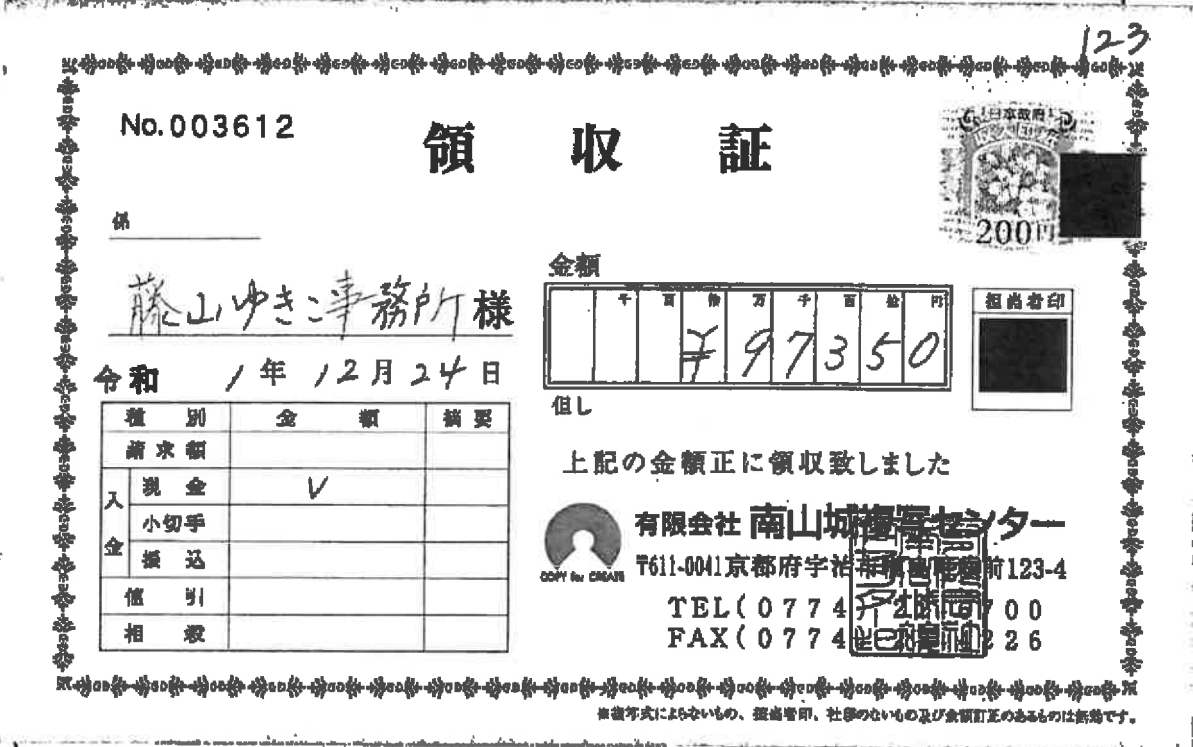 123
No.003612
領収証
日本政府
200円
係
藤山ゆきこ事務所様
金額
千 百 拾 万 千 百 拾 円
¥97350
担当者印
令和 1年 12月 24日
但し
種別 金額 摘要
請求額
入金
現金 V
小切手
振込
値引
相殺
上記の金額正に領収致しました
COPY for CREATE
有限会社 南山城複写センター
〒611-0041京都府宇治市槇島町 前123-4
TEL(0774) 2 700
FAX(0774) 226
※複写式によらないもの、担当者印、社印のないもの及び金額訂正のあるものは無効です。